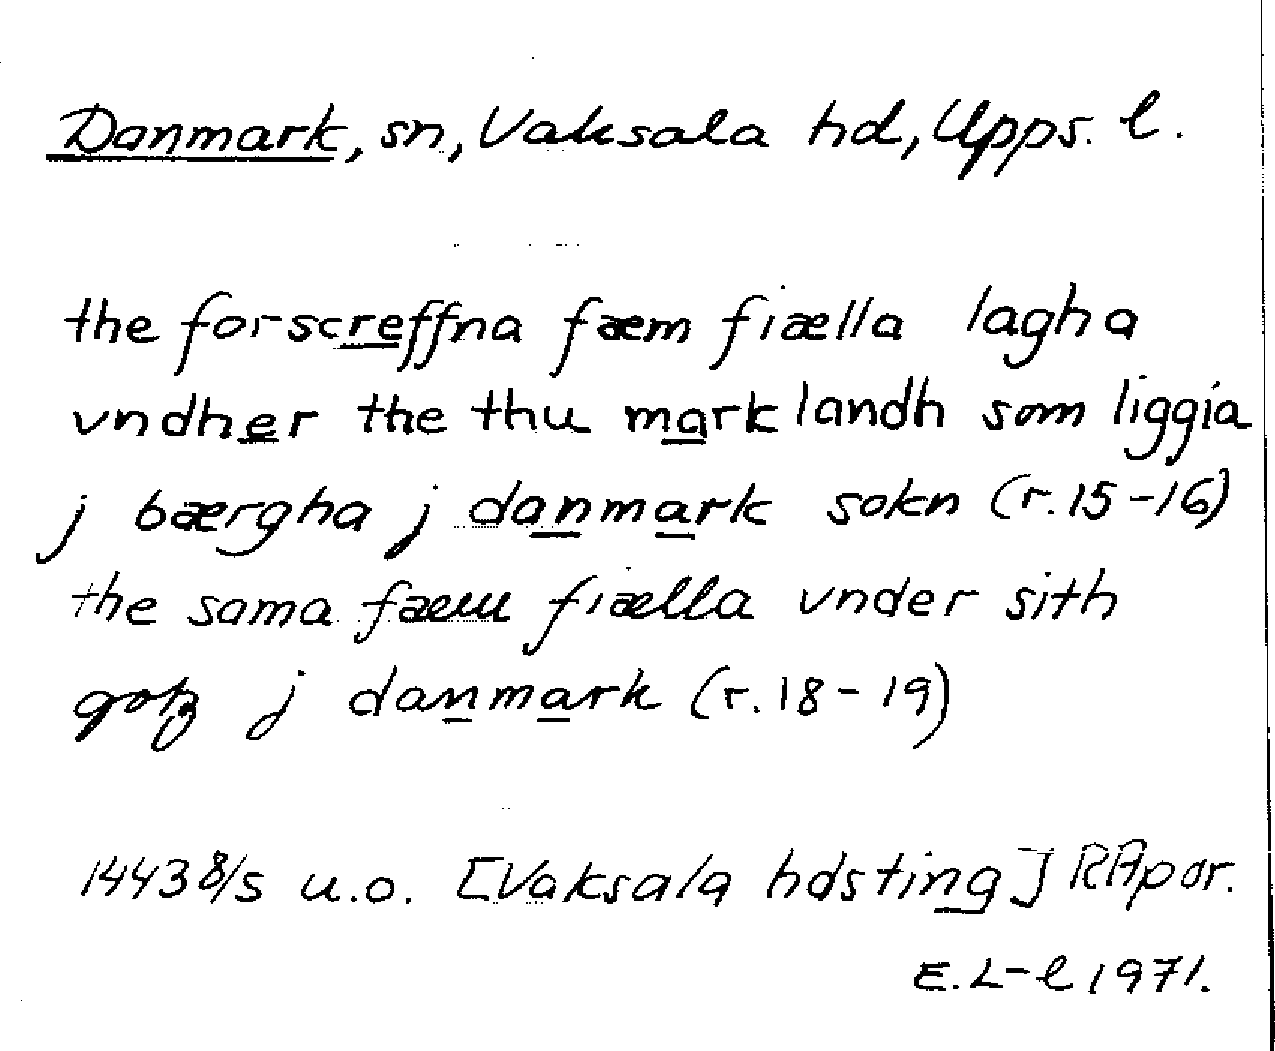 Danmark, sn, Vaksala hd, Upps. l.
the forscreffna fæm fiælla lagha
vndher the thu mark landh som liggia
j bærgha j danmark sokn (r. 15-16)
the sama fæm fiælla vnder sith
gotz j danmark (r. 18-19)
1443 8/5 u.o. [Vaksala hdsting] RApar.
E. L-l 1971.